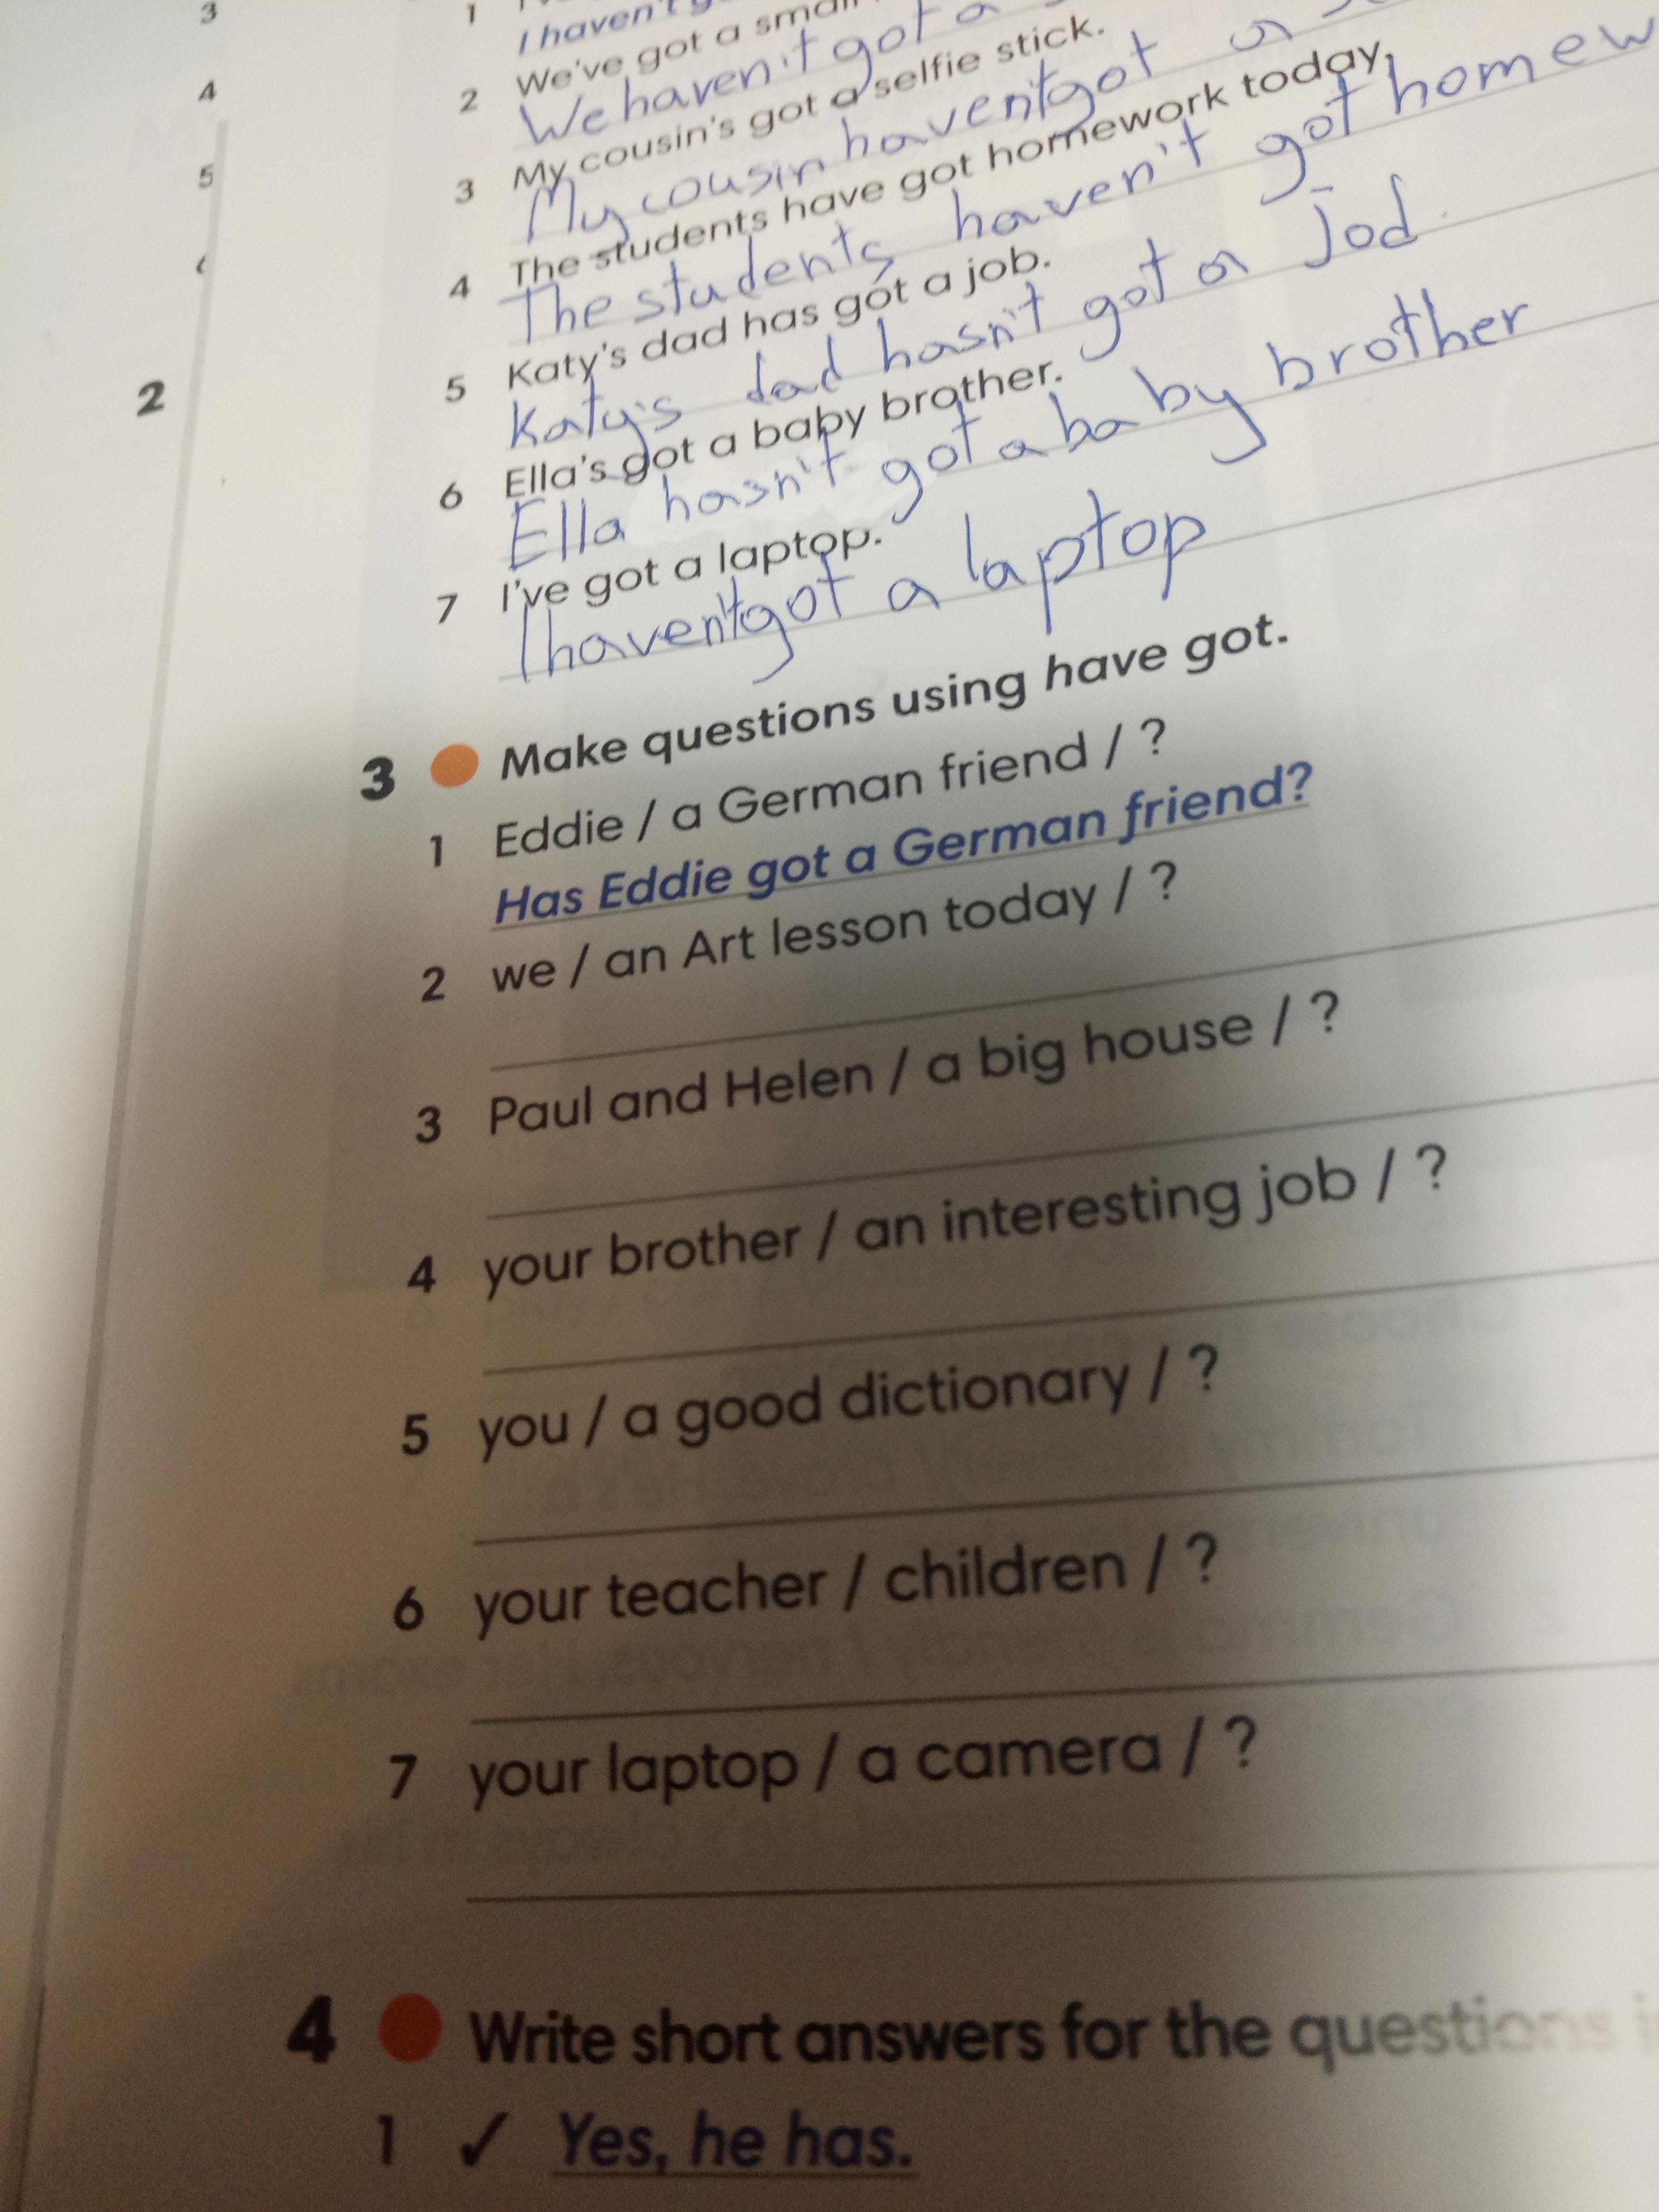 3
4
5
2
1
I haven't g
2 We've got a small
We haven't got a
3 My cousin's got a selfie stick.
My cousin haven't got a
4 The students have got homework today.
The students haven't got homew
5 Katy's dad has got a job.
Katy's dad hasn't got a jod
6 Ella's got a baby brother.
Ella hasn't got a baby brother
7 I've got a laptop.
I haven't got a laptop
3 Make questions using have got.
1 Eddie / a German friend / ?
Has Eddie got a German friend?
2 we / an Art lesson today / ?
3 Paul and Helen / a big house / ?
4 your brother / an interesting job / ?
5 you / a good dictionary / ?
6 your teacher / children / ?
7 your laptop / a camera / ?
4 Write short answers for the questions i
1 ✓ Yes, he has.